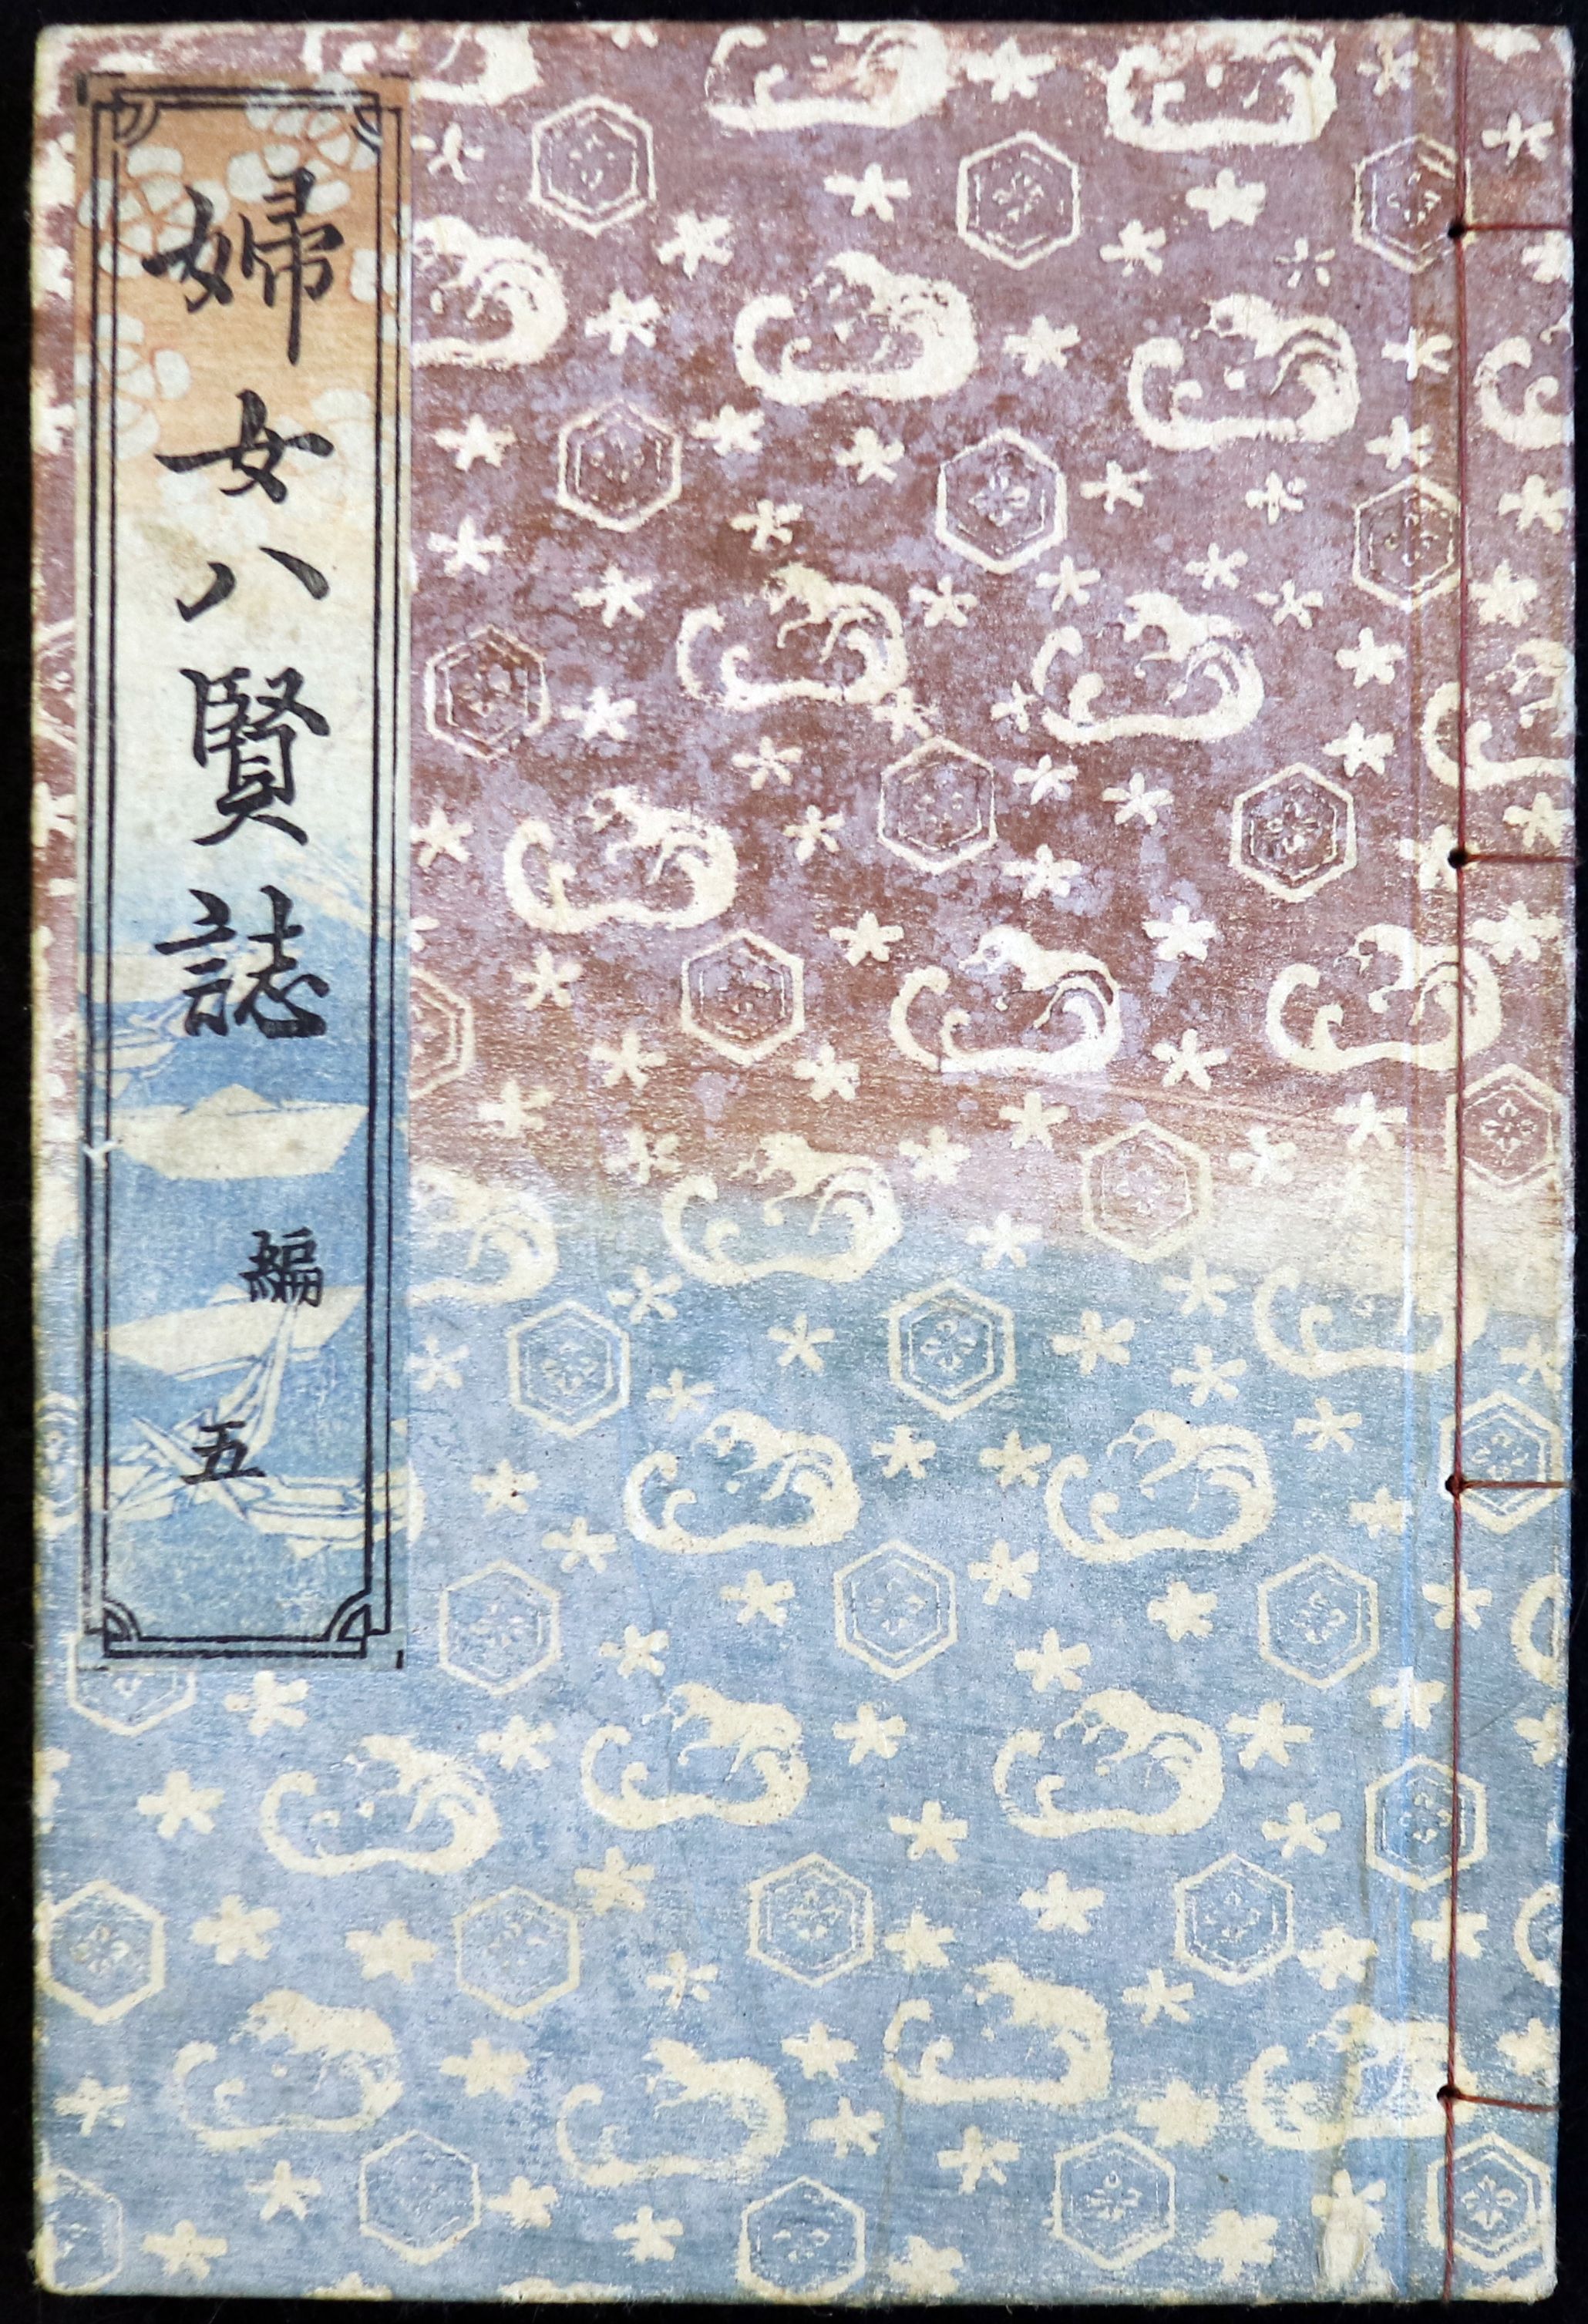 婦女八賢誌
編
五